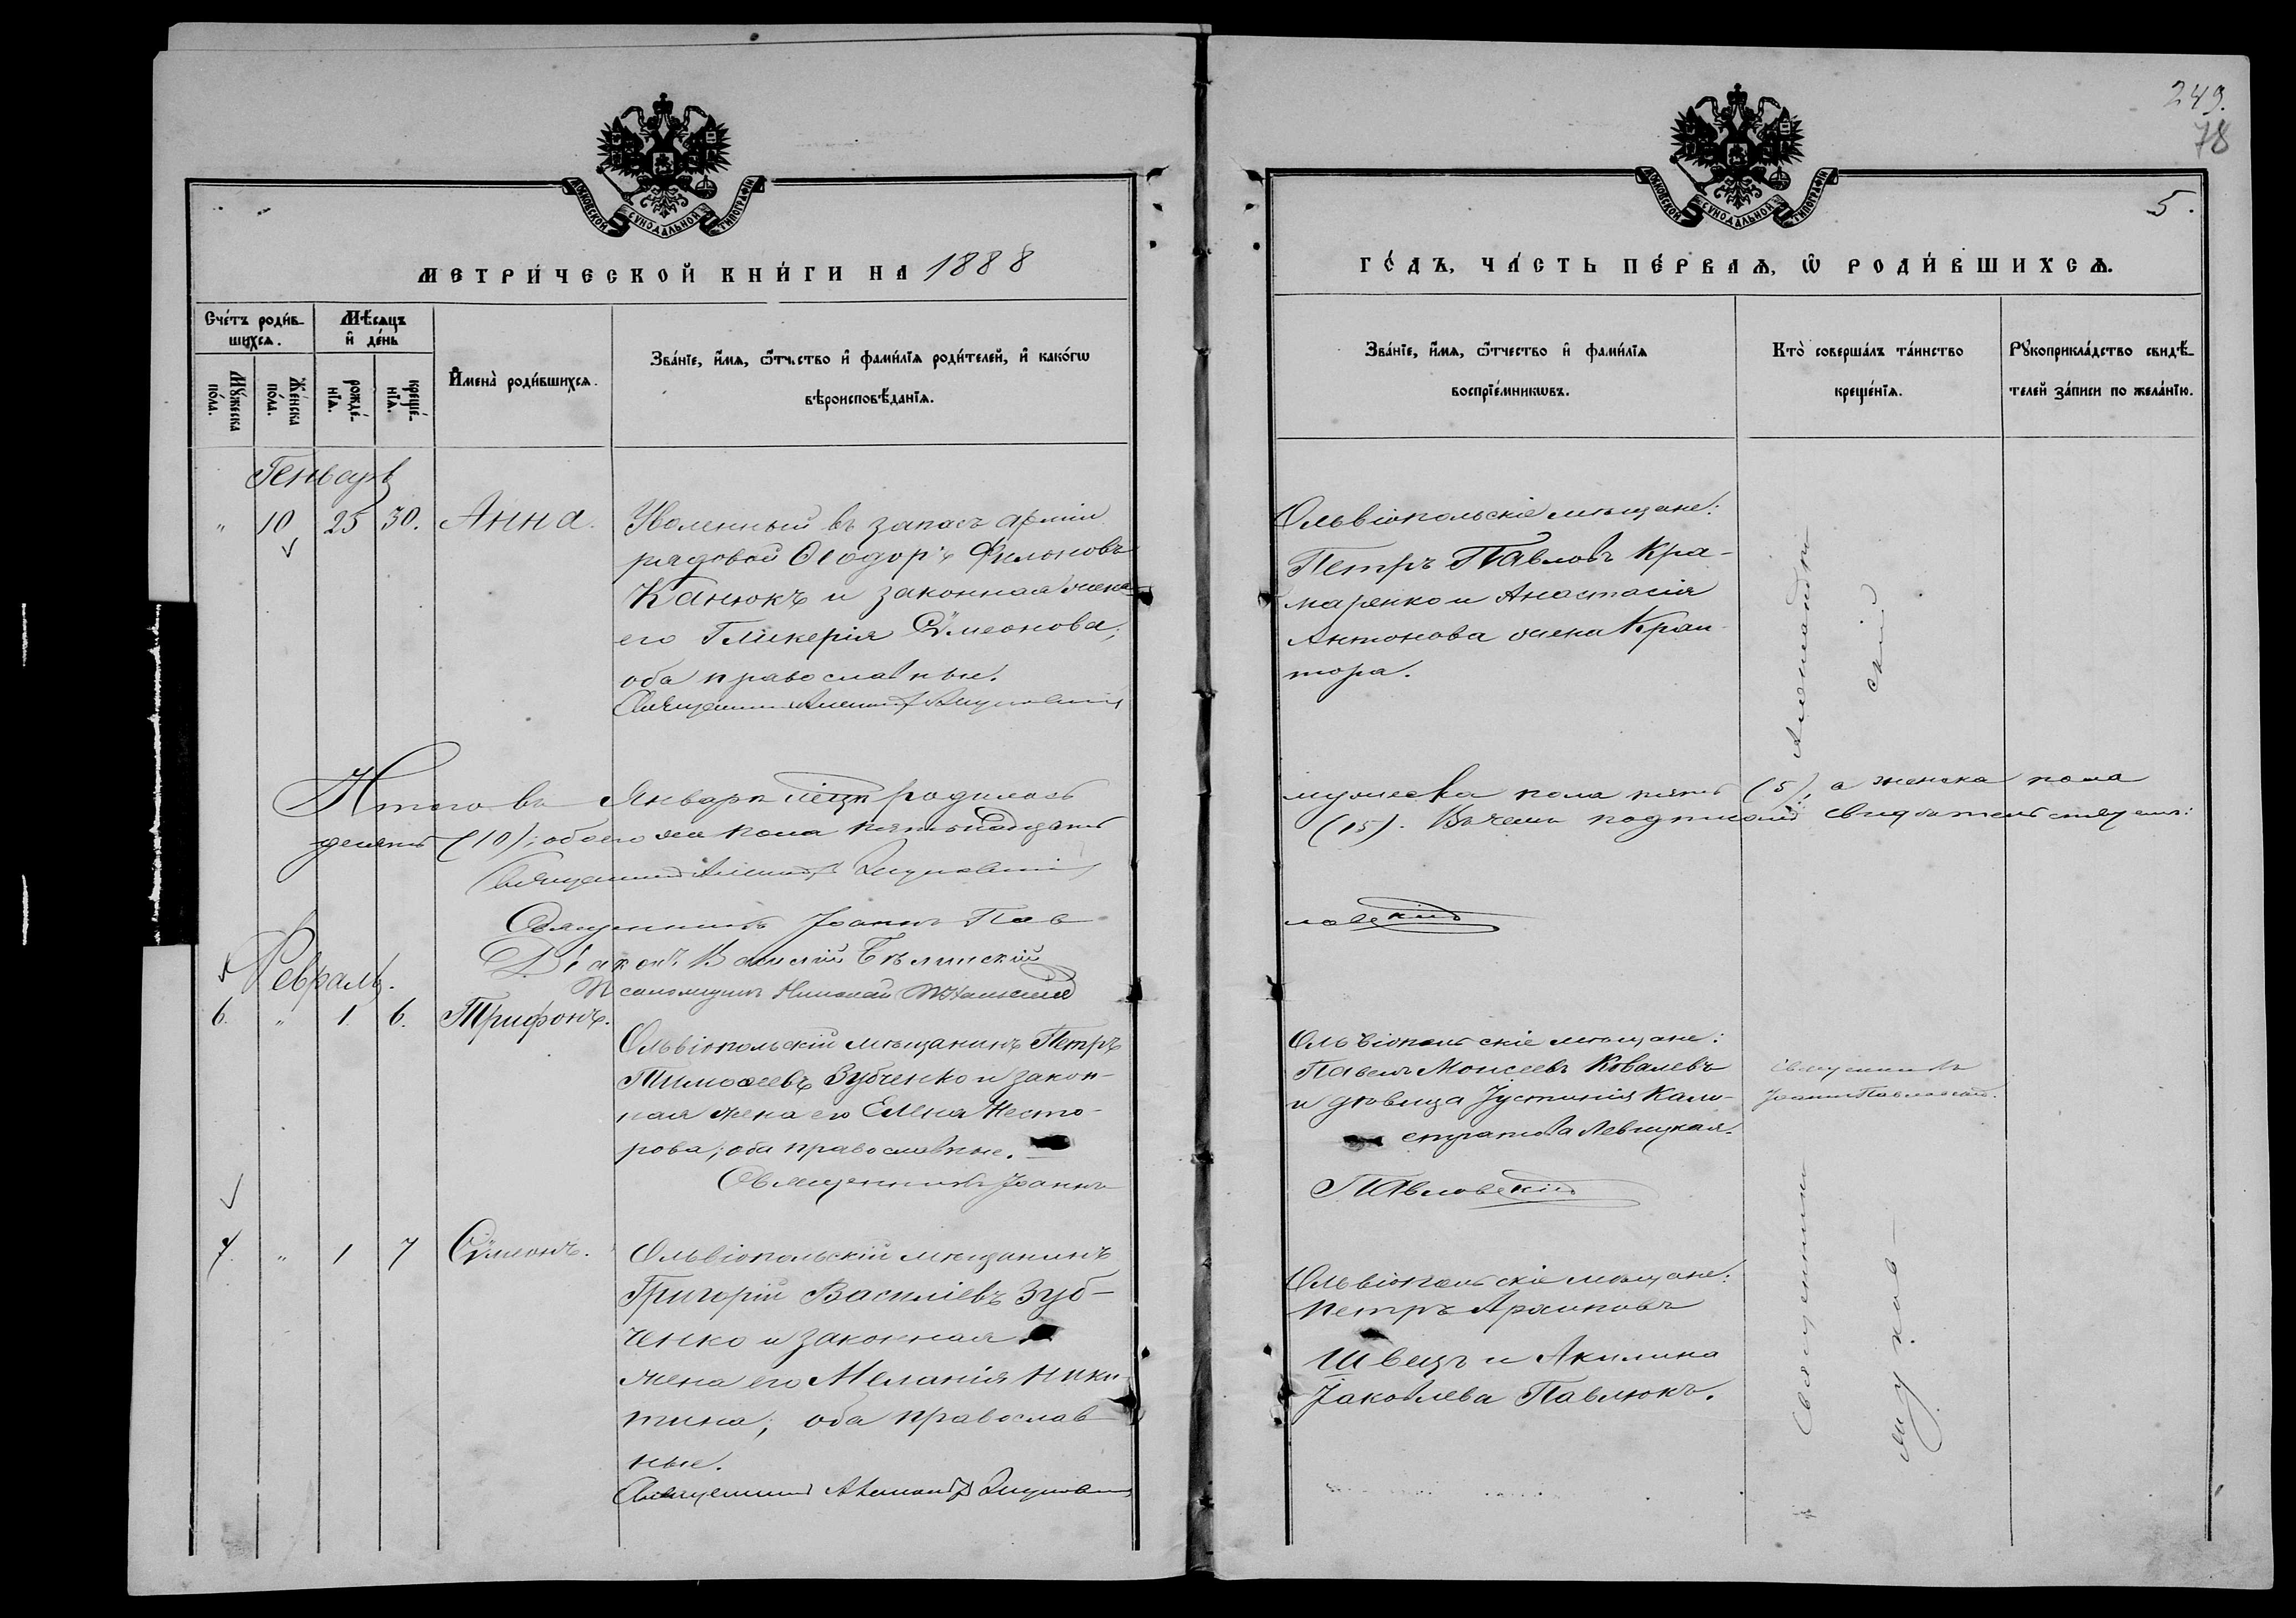 249.
78
5.
МОСКОВСКОЙ СѴНОДАЛЬНОЙ ТИПОГРАФІИ
МОСКОВСКОЙ СѴНОДАЛЬНОЙ ТИПОГРАФІИ
МЕТРИ́ЧЕСКОЙ КНИ́ГИ НА 1888
ГО́ДЪ, ЧА́СТЬ ПЕ́РВАѦ, Ѽ РОДИ́ВШИХСѦ.
Сче́тъ роди́в-
шихсѧ.
Мѣ́сѧцъ
и҆ де́нь
Му́жеска
по́ла.
Же́нска
по́ла.
рожде́-
нїѧ.
креще́-
нїѧ.
И҆мена̀ роди́вшихсѧ.
Зва́нїе, и҆́мѧ, ѻ҆́тчество и҆ фами́лїѧ роди́телей, и҆ како́гѡ
вѣроисповѣ́данїѧ.
Зва́нїе, и҆́мѧ, ѻ҆́тчество и҆ фами́лїѧ
воспрїе́мникѡвъ.
Кто̀ соверша́лъ та́инство
креще́нїѧ.
Рꙋкоприкла́дство свидѣ́-
телей за́писи по жела́нїю.
Генварь
" 10 25 30. Анна.
Уволенный въ запасъ арміи
рядовой Ѳеодоръ Филоновъ
Канюкъ и законная жена
его Гликерія Сѵмеонова,
оба православные.
Священник
Ольвіопольскіе мѣщане:
Петръ Павловъ Кра-
маренко и Анастасія
Антонова жена Кран-
тора.
Итого въ Январѣ мцѣ родилось
мужеска пола пять (5), а женска пола
десять (10); обоего же пола пятьнадцать
(15). Въ чемъ подписомъ свидѣтельствуемъ:
Священник
Священникъ Іоаннъ Пав-
ловскій
Діаконъ Василій Бѣлинскій
Псаломщикъ Николай
Февраль.
6. " 1. 6. Трифонъ.
Ольвіопольскій мѣщанинъ Петръ
Тимоѳеевъ Зубченко и закон-
ная жена его Елена Несто-
рова; оба православные.
Священникъ Іоаннъ
Павловскій
Ольвіопольскіе мѣщане:
Павелъ Моисеевъ Ковалевъ
и дѣвица Іустинія Кали-
стратова Левицкая.
Священникъ
Іоаннъ Павловскій.
7. " 1 7 Сѵмеонъ.
Ольвіопольскій мѣщанинъ
Григорій Василіевъ Зуб-
ченко и законная
жена его Меланія Ники-
тина, оба православ
ные.
Священник
Ольвіопольскіе мѣщане:
Петръ
Швецъ и Акилина
Іаковлева Павлюкъ.